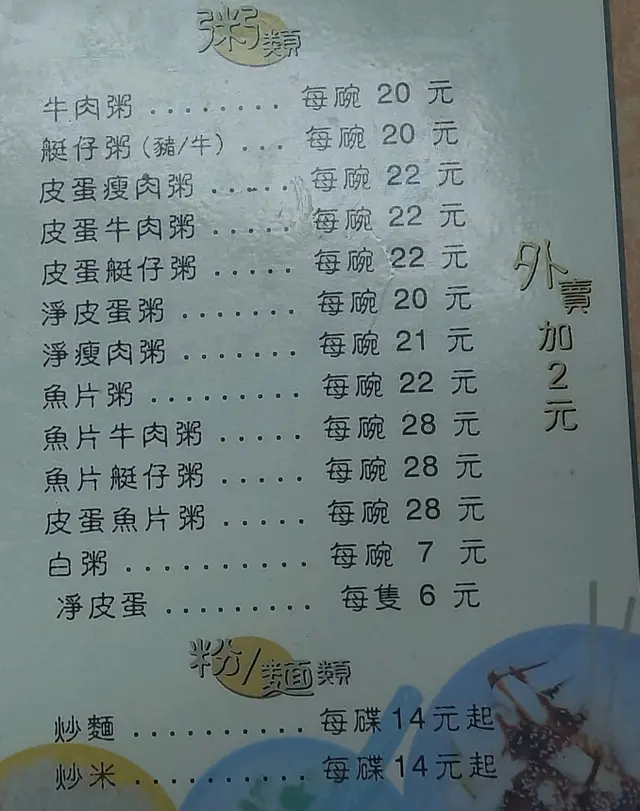 粥類
牛肉粥 ........ 每碗 20 元
艇仔粥(豬/牛) ... 每碗 20 元
皮蛋瘦肉粥 ..... 每碗 22 元
皮蛋牛肉粥 ..... 每碗 22 元
皮蛋艇仔粥 ..... 每碗 22 元
淨皮蛋粥 ....... 每碗 20 元
淨瘦肉粥 ....... 每碗 21 元
魚片粥 ......... 每碗 22 元
魚片牛肉粥 ..... 每碗 28 元
魚片艇仔粥 ..... 每碗 28 元
皮蛋魚片粥 ..... 每碗 28 元
白粥 .......... 每碗 7 元
淨皮蛋 ......... 每隻 6 元
外賣加2元
粉/麵類
炒麵 .......... 每碟14元起
炒米 .......... 每碟14元起